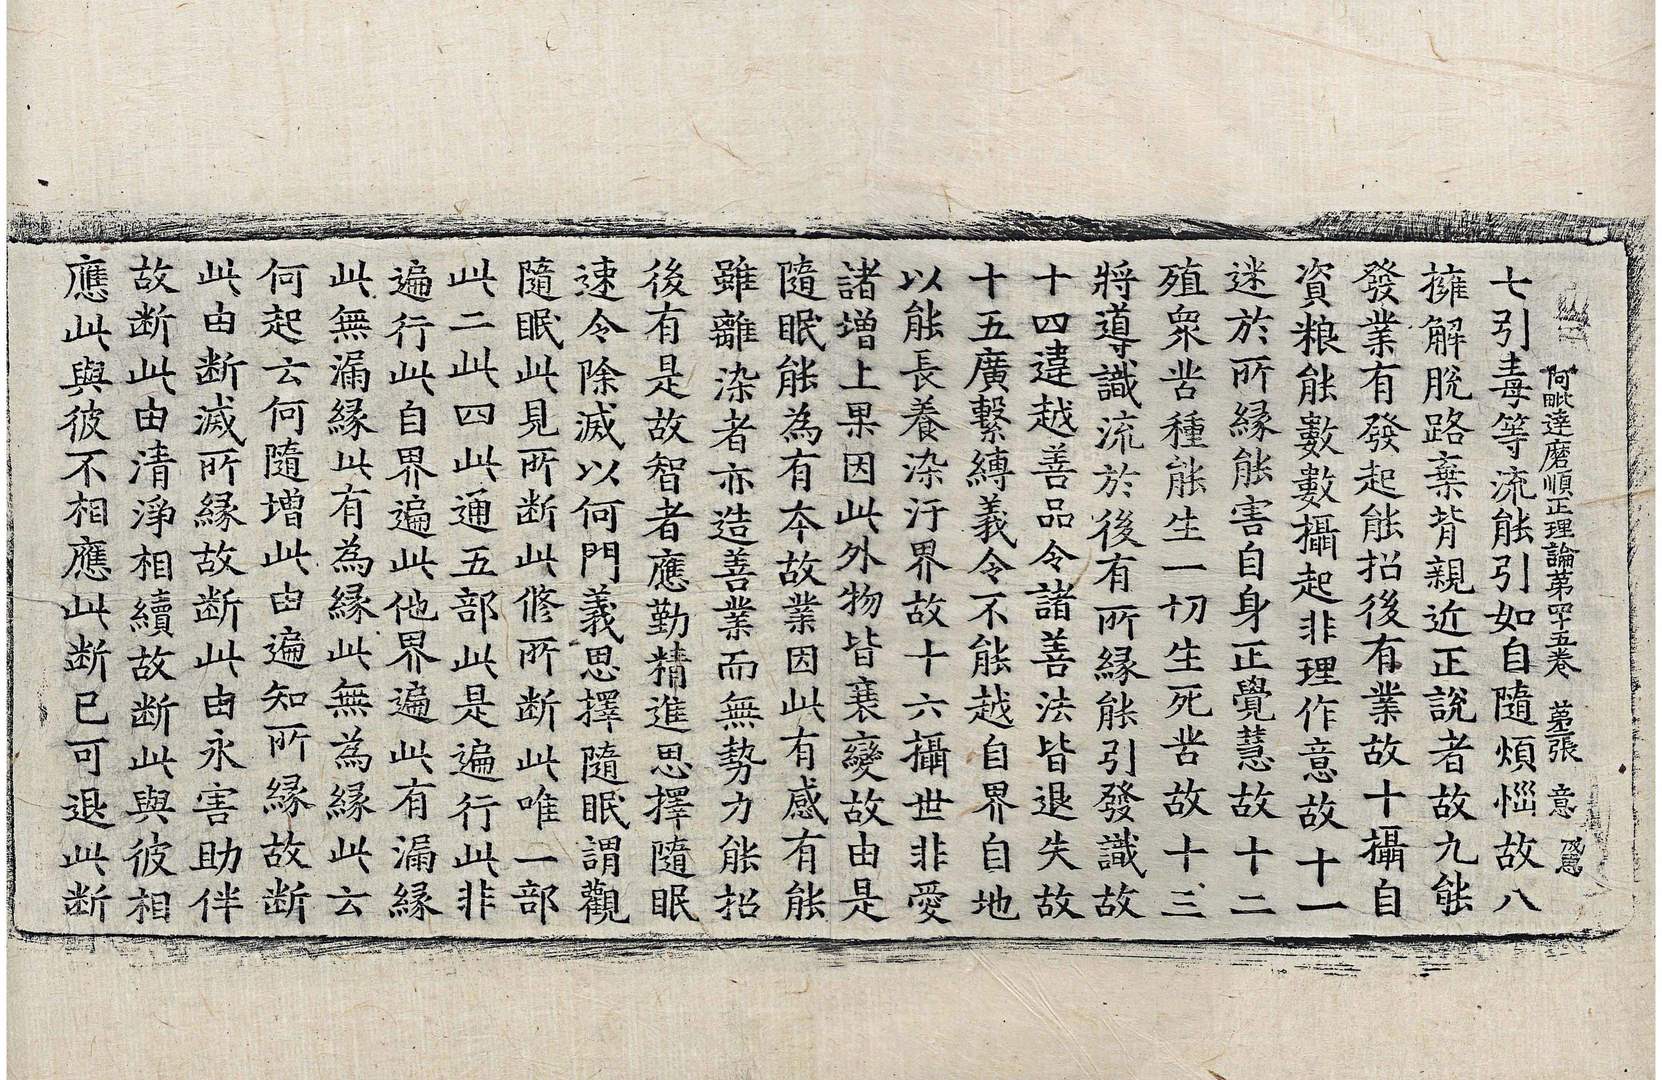 阿毗達磨順正理論第四十五卷　第三張　意
七引毒等流能引如自隨煩惱故八
擁解脫路棄背親近正說者故九能
發業有發起能招後有業故十攝自
資粮能數數攝起非理作意故十一
迷於所緣能害自身正覺慧故十二
殖衆苦種能生一切生死苦故十三
將導識流於後有所緣能引發識故
十四違越善品令諸善法皆退失故
十五廣繫縛義令不能越自界自地
以能長養染汙界故十六攝世非愛
諸增上果因此外物皆衰變故由是
隨眠能為有本故業因此有感有能
雖離染者亦造善業而無勢力能招
後有是故智者應勤精進思擇隨眠
速令除滅以何門義思擇隨眠謂觀
隨眠此見所断此修所断此唯一部
此二此四此通五部此是遍行此非
遍行此自界遍此他界遍此有漏緣
此無漏緣此有為緣此無為緣此云
何起云何隨增此由遍知所緣故断
此由断滅所緣故断此由永害助伴
故断此由清淨相續故断此與彼相
應此與彼不相應此断已可退此断